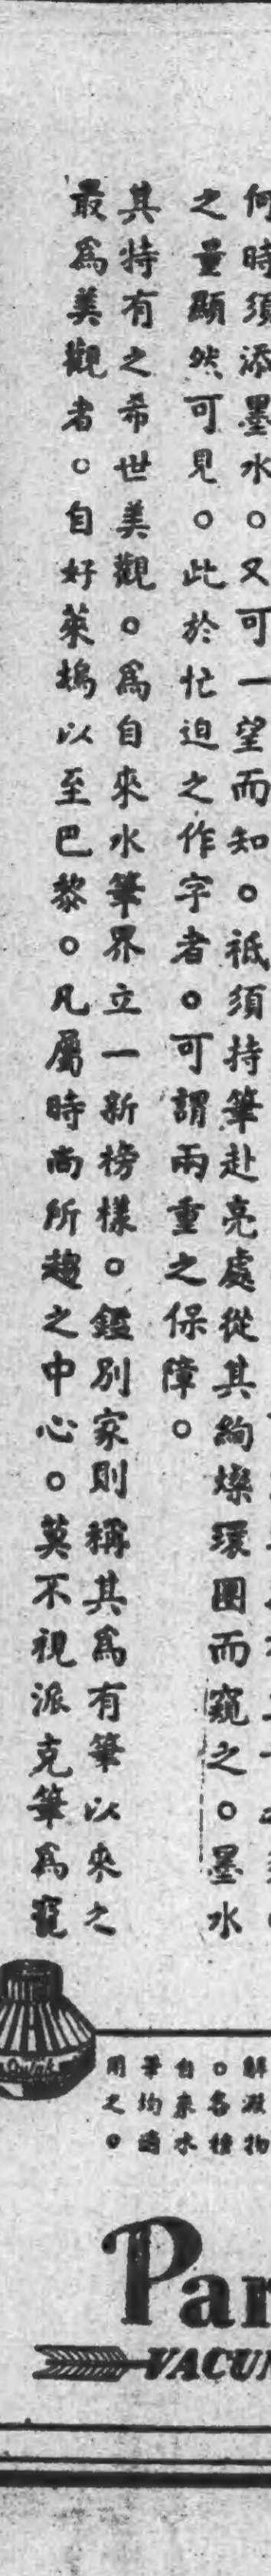 何時須添墨水。又可一望而知。祗須持筆赴亮處從其絢燦環圈而窺之。墨水
之量顯然可見。此於忙迫之作字者。可謂兩重之保障。
其特有之希世美觀。為自來水筆界立一新榜樣。鑑別家則稱其為有筆以來之
最為美觀者。自好萊塢以至巴黎。凡屬時尚所趨之中心。莫不視派克筆為寵
Quink
解澱物
。各種
自來水
筆均適
用之。
Par
VACU